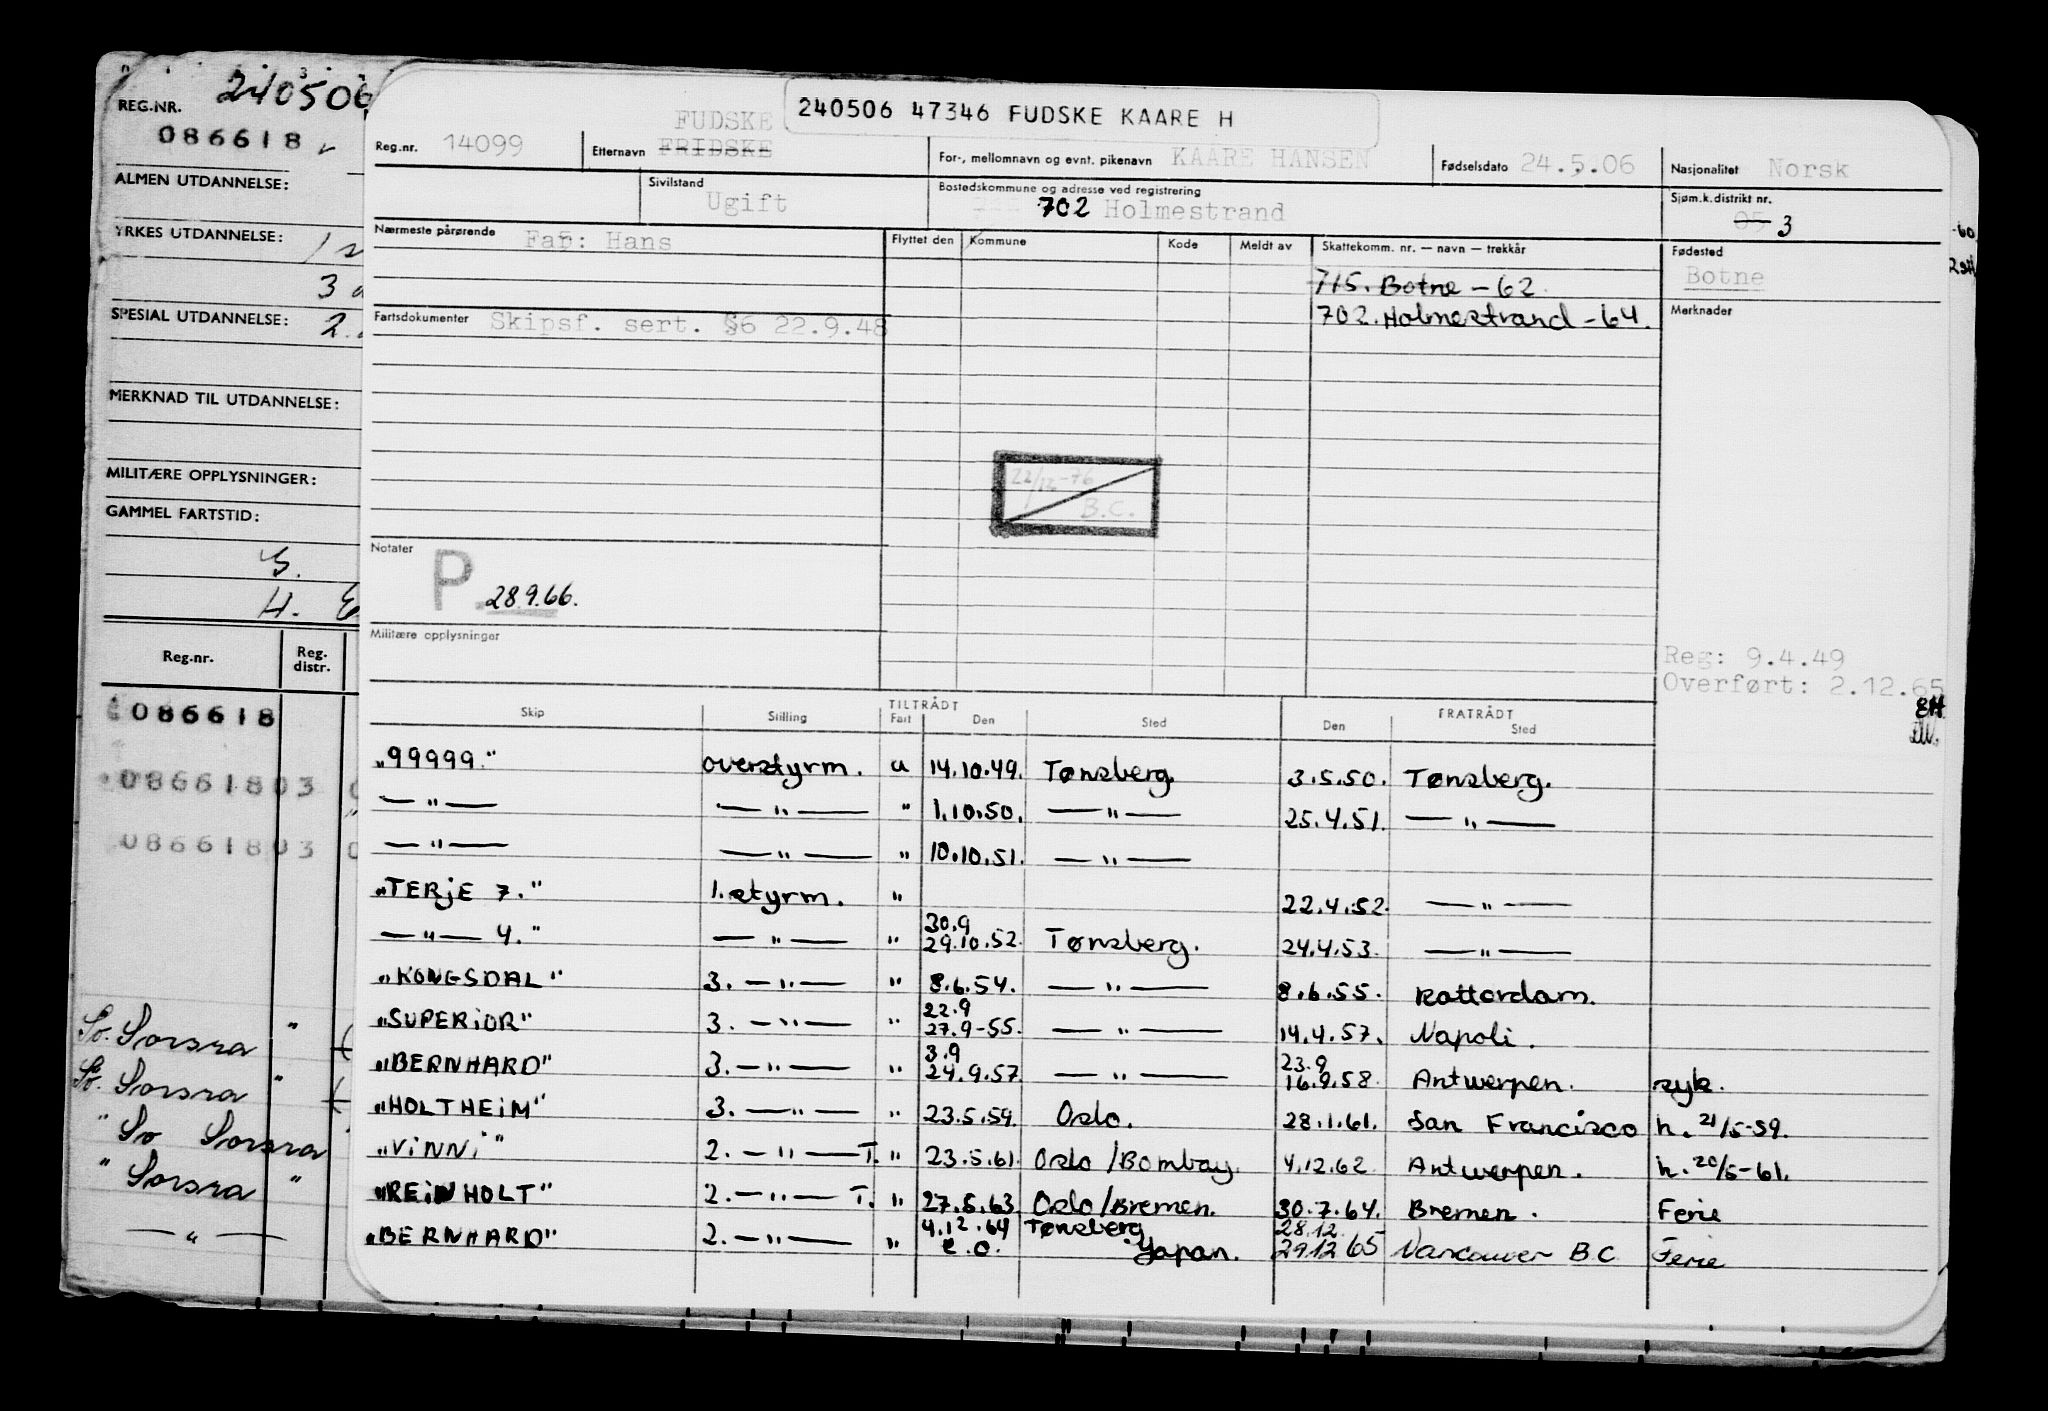 REG.NR. 240506
086618
ALMEN UTDANNELSE:
YRKES UTDANNELSE:
3
SPESIAL UTDANNELSE: 2.
MERKNAD TIL UTDANNELSE:
MILITÆRE OPPLYSNINGER:
GAMMEL FARTSTID:
H.
Reg.nr. Reg. distr.
086618
08661803
08661803
So. Sorsra "
So. Sorsra "
" So Sorsra
" Sorsra "
— " —
240506 47346 FUDSKE KAARE H
FUDSKE
Reg.nr. 14099 Etternavn FRIDSKE For-, mellomnavn og evnt. pikenavn KAARE HANSEN Fødselsdato 24.5.06 Nasjonalitet Norsk
Sivilstand Ugift Bostedskommune og adresse ved registrering 702 Holmestrand Sjøm.k.distrikt nr. 05 3
Nærmeste pårørende Far: Hans Flyttet den Kommune Kode Meldt av Skattekomm. nr. — navn — trekkår Fødested
715. Botne – 62. Botne
Fartsdokumenter Skipsf. sert. §6 22.9.48 702. Holmestrand – 64. Merknader
22/12-76
B.C.
Notater P. 28.9.66.
Militære opplysninger
Reg: 9.4.49
Overført: 2.12.65
EH
TILTRÅDT FRATRÅDT
Skip Stilling Fart Den Sted Den Sted
„99999." overstyrm. u 14.10.49. Tønsberg. 3.5.50. Tønsberg.
— " — — " — " 1.10.50. — " — 25.4.51. — " —
— " — — " — " 10.10.51. — " —
„TERJE 7." 1. styrm. " 22.4.52. — " —
— " — 4." — " — " 30.9 29.10.52. Tønsberg. 24.4.53. — " —
„KONGSDAL" 3. — " — " 8.6.54. — " — 8.6.55. Rotterdam.
„SUPERIOR" 3. — " — " 22.9 27.9-55. — " — 14.4.57. Napoli.
„BERNHARD" 3. — " — " 3.9 24.9.57. — " — 23.9 16.9.58. Antwerpen. syk.
„HOLTHEIM" 3. — " — " 23.5.59. Oslo. 28.1.61. San Francisco h. 21/5-59.
„VINNI" 2. — " — T. " 23.5.61. Oslo/Bombay. 4.12.62. Antwerpen. h. 20/5-61.
„REINHOLT" 2. — " — T. " 27.5.63. Oslo/Bremen. 30.7.64. Bremen. Ferie
„BERNHARD" 2. — " — " 4.12.64 e.o. Tønsberg Japan. 28.12. 29.12.65 Vancouver B.C. Ferie